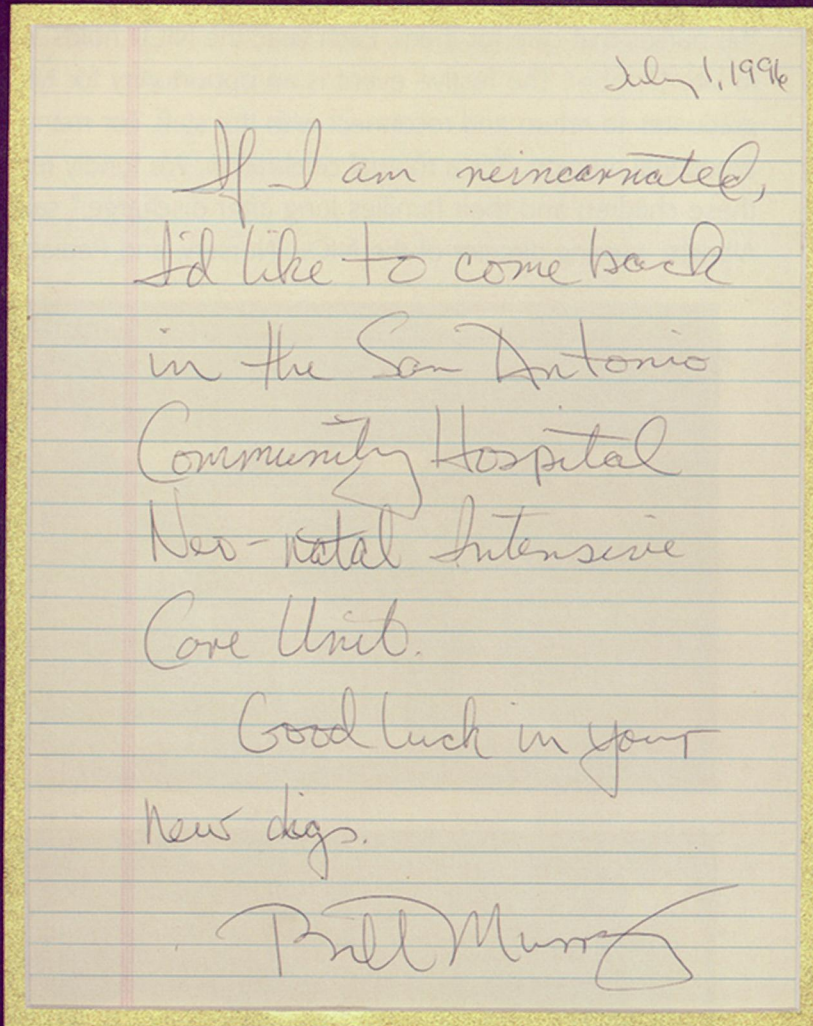 July 1, 1996
If I am reincarnated,
I'd like to come back
in the San Antonio
Community Hospital
Neo-natal Intensive
Care Unit.
Good luck in your
new digs.
Bill Murray